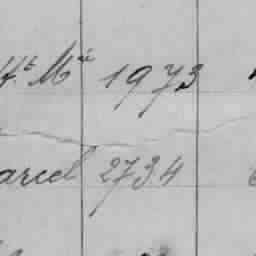 St. Mie 1973
arcel 2734